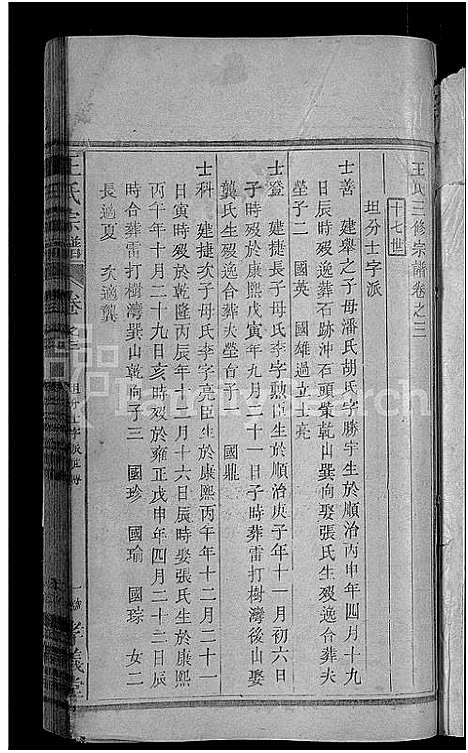 王氏三修宗譜卷之三
十七世
坦分士字派
士善 建舉之子母潘氏胡氏字勝宇生於順治丙申年四月十九
日辰時歿逸葬石跡沖石頭第乾山巽向娶張氏生歿逸合葬夫
塋子二 國英 國雄過立士亮
士登 建捷長子母氏李字勳臣生於順治庚子年十一月初六日
子時歿於康熙戊寅年九月二十一日子時葬雷打樹灣後山娶
龔氏生歿逸合葬夫塋首子一 國鼎
士科 建捷次子母氏李字亮臣生於康熙丙午年十二月二十一
日寅時歿於乾隆丙辰年十二月十六日辰時娶張氏生於康熙
丙午年十月二十九日亥時歿於雍正戊申年四月二十二日辰
時合葬雷打樹灣巽山乾向子三 國珍 國瑜 國琮 女二
長適夏 次適龔
王氏宗譜 卷之三 坦分士字派世傳 一 孝義堂